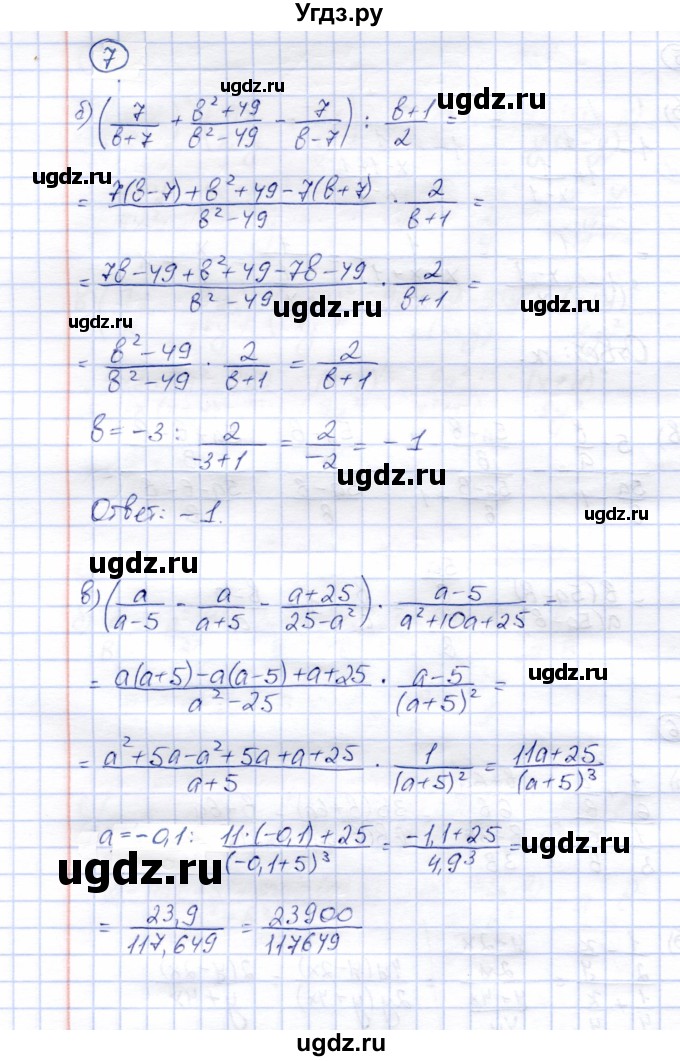 Угдз.ру
7
ugdz.ru
б) (7/(в+7) + (в²+49)/(в²-49) - 7/(в-7)) : (в+1)/2 =
ugdz.ru
ugdz.ru
= (7(в-7)+в²+49-7(в+7))/(в²-49) · 2/(в+1) =
= (7в-49+в²+49-7в-49)/(в²-49) · 2/(в+1) =
ugdz.ru
ugdz.ru
ugdz.ru
= (в²-49)/(в²-49) · 2/(в+1) = 2/(в+1)
в=-3: 2/(-3+1) = 2/(-2) = -1
ugdz.ru
Ответ: -1.
ugdz.ru
ugdz.ru
в) (a/(a-5) - a/(a+5) - (a+25)/(25-a²)) · (a-5)/(a²+10a+25) =
= (a(a+5)-a(a-5)+a+25)/(a²-25) · (a-5)/(a+5)² =
ugdz.ru
= (a²+5a-a²+5a+a+25)/(a+5) · 1/(a+5)² = (11a+25)/(a+5)³
a=-0,1: (11·(-0,1)+25)/(-0,1+5)³ = (-1,1+25)/4,9³ =
ugdz.ru
ugdz.ru
= 23,9/117,649 = 23900/117649
ugdz.ru